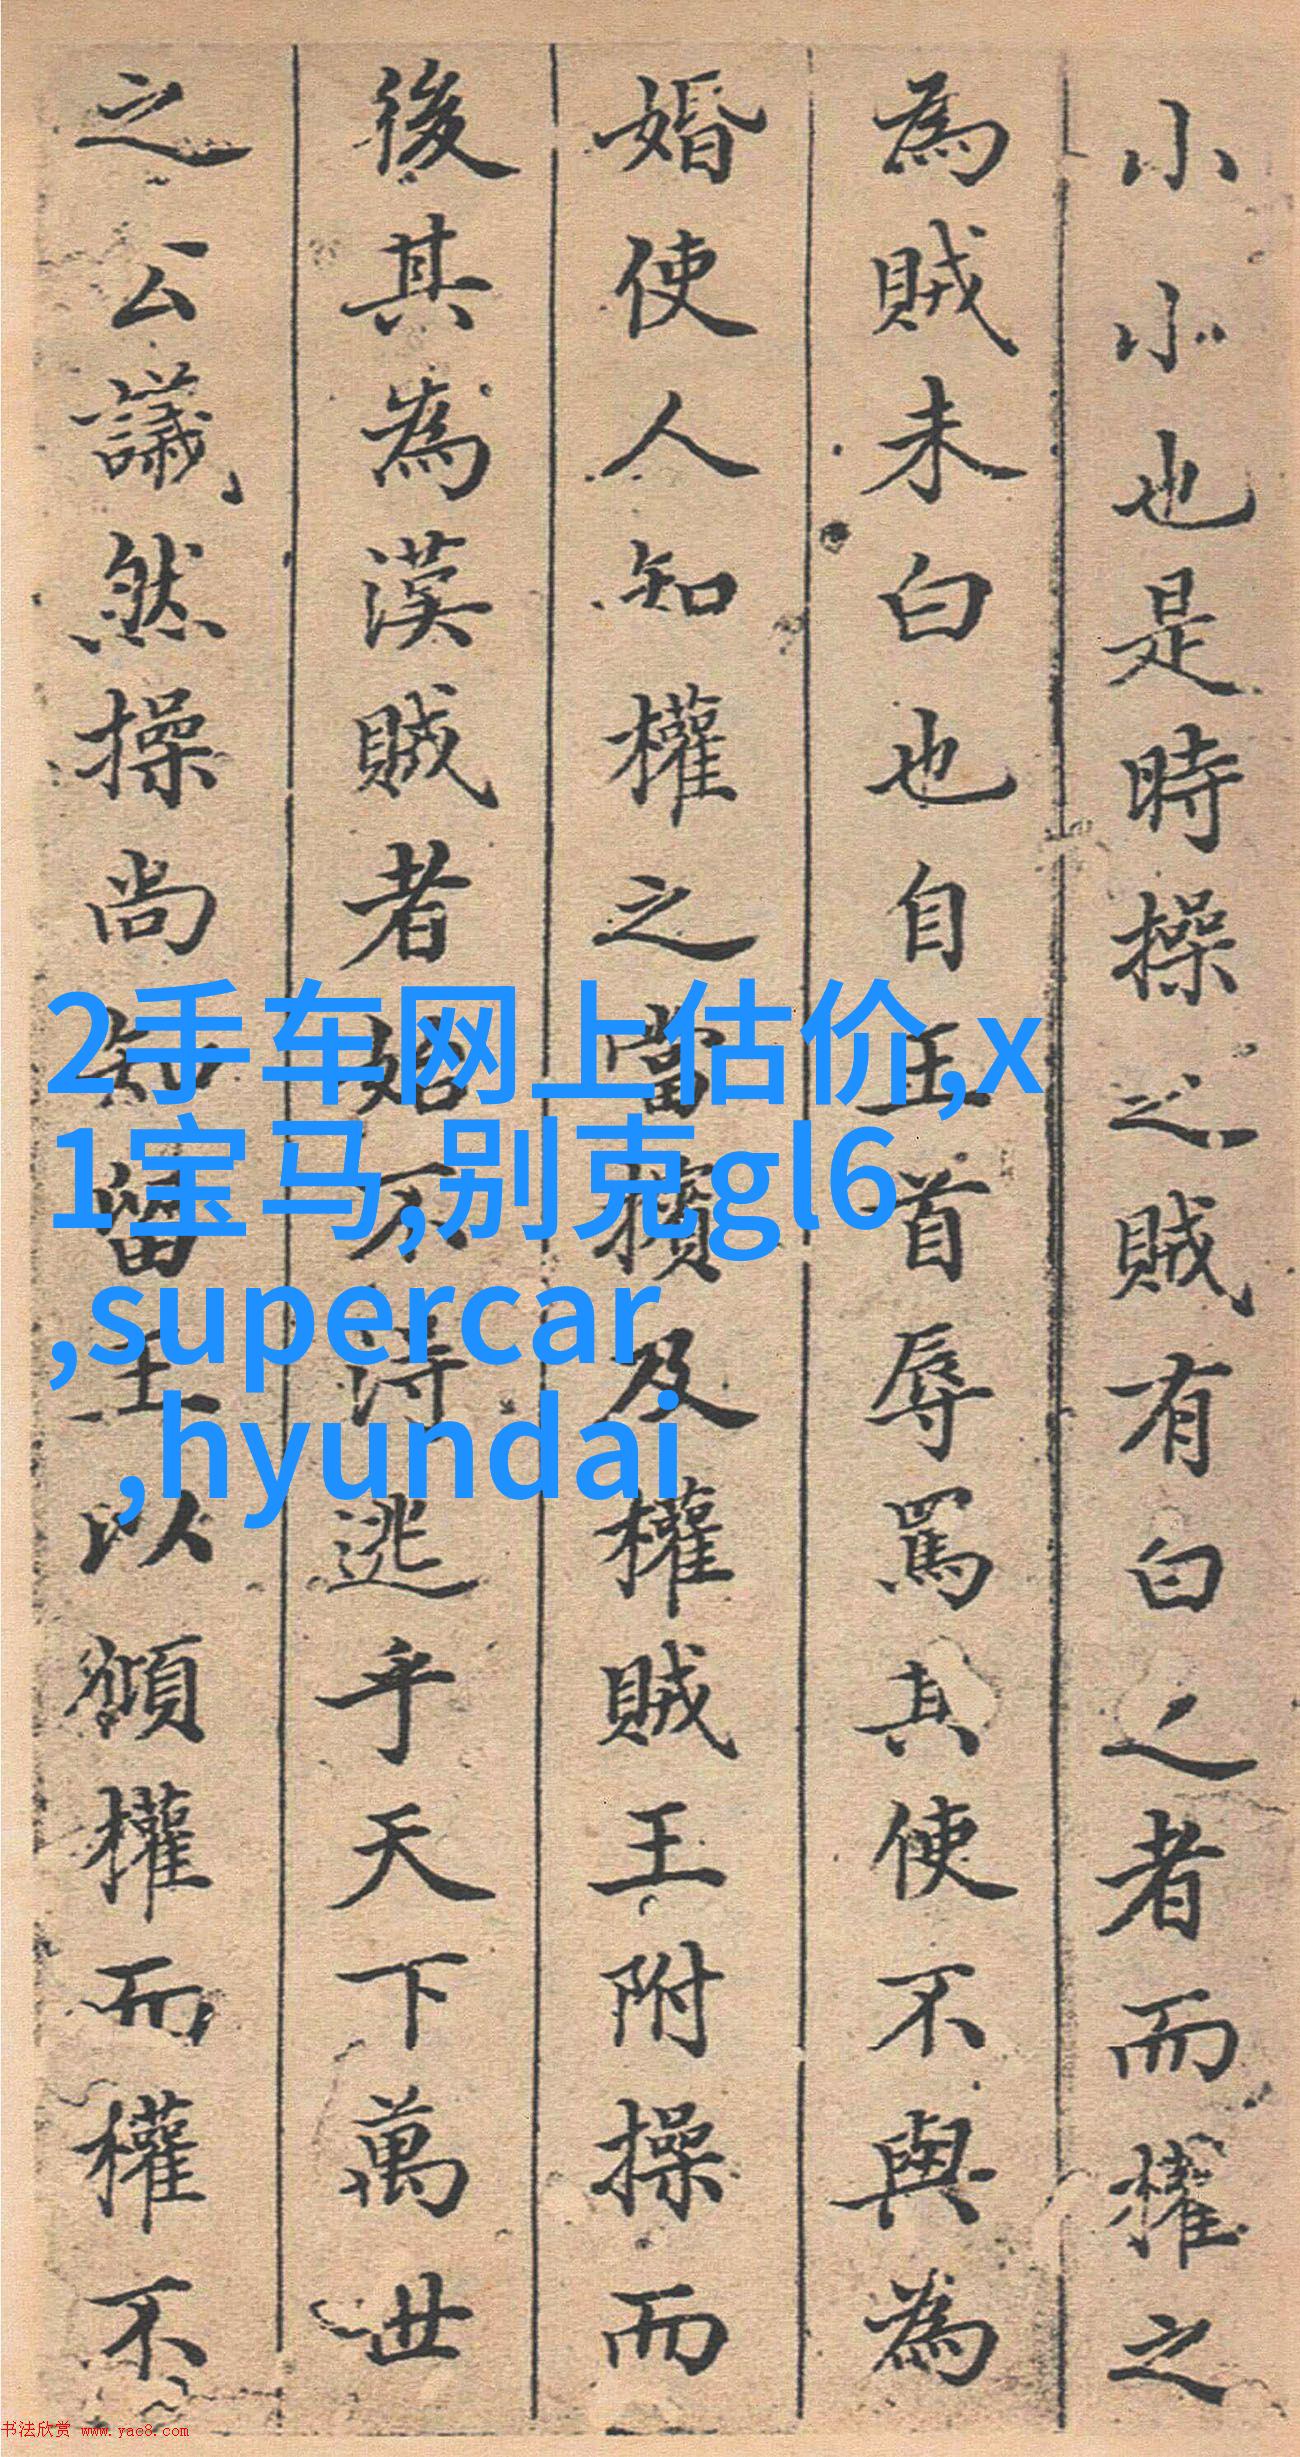 小小也是時操之賊有白之者而權之
為賊未白也自王首辱罵其使不與為
婚使人知權之當擯及權賊王附操而
後其為漢賊者始不得逃乎天下萬世
之公議然操尚知留王以傾權而權不
2手车网上估价,x
1宝马,别克gl6
,supercar
,hyundai
书法欣赏 www.yac8.com